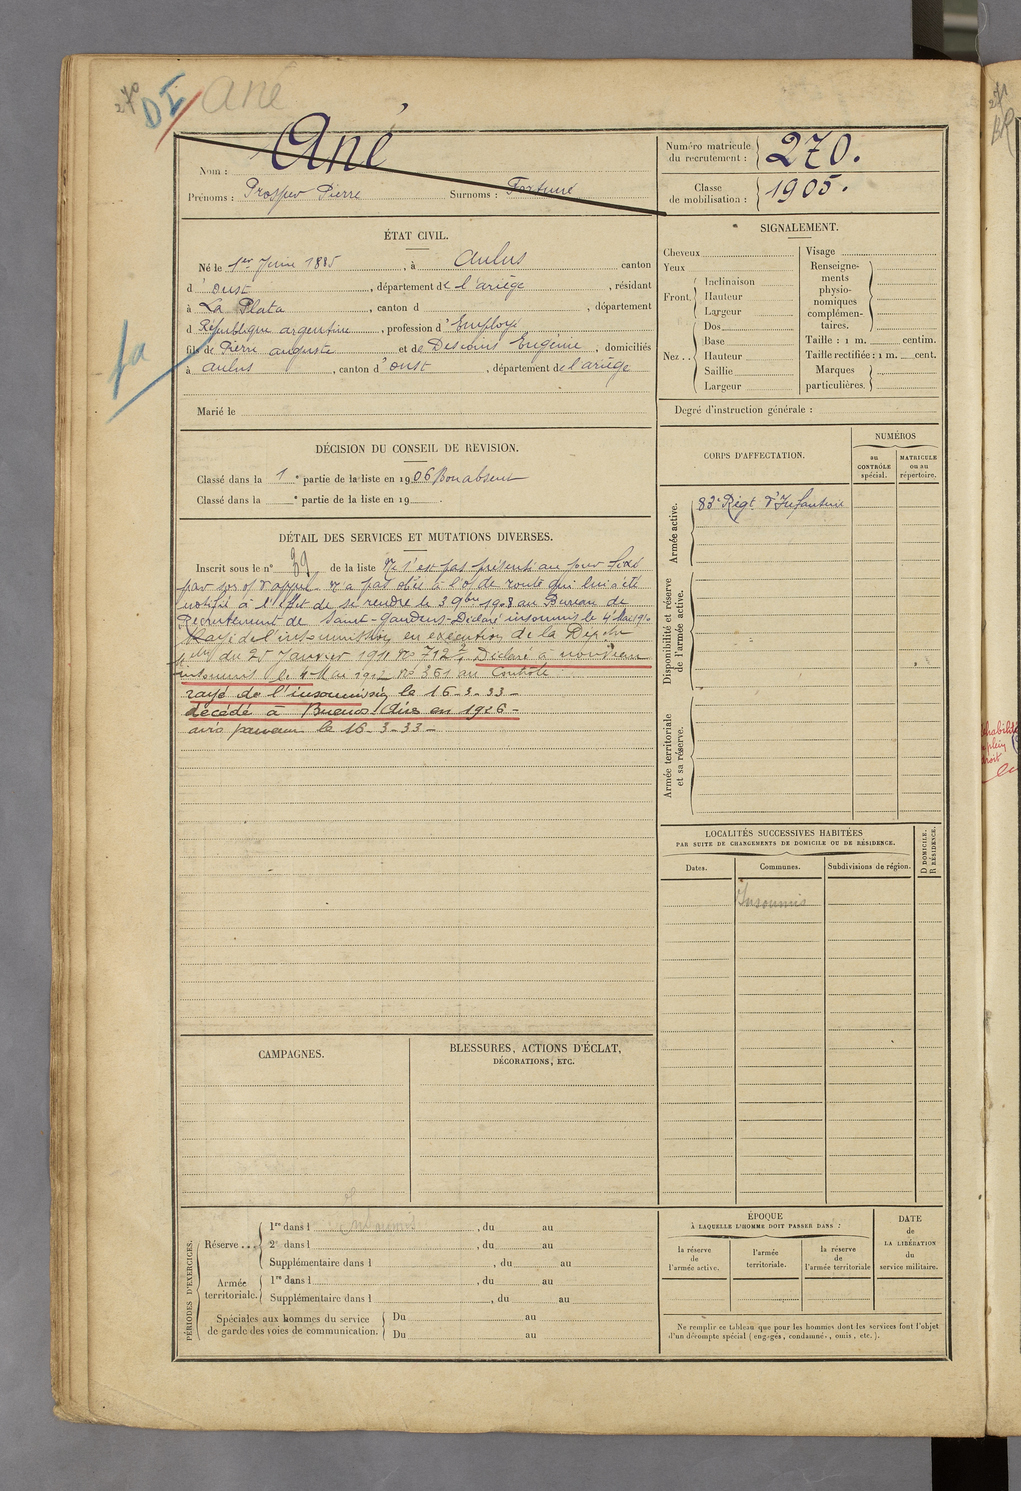 270
DI
Ané
Ané
Nom :
Prénoms : Prosper Pierre Surnoms : Fortuné
Numéro matricule du recrutement : 270.
Classe de mobilisation : 1905.
ÉTAT CIVIL.
Né le 1er Juin 1885, à Aulus canton
d'Oust, département de l'ariège, résidant
à La Plata, canton d , département
d République argentine, profession d'Employé
fils de Pierre auguste et de Desouis Eugénie, domiciliés
à aulus, canton d'oust, département de l'ariège
Marié le
SIGNALEMENT.
Cheveux
Yeux
Front. Inclinaison
Hauteur
Largeur
Nez.. Dos
Base
Hauteur
Saillie
Largeur
Visage
Renseignements physionomiques complémentaires.
Taille : 1 m. centim.
Taille rectifiée : 1 m. cent.
Marques particulières.
Degré d'instruction générale :
DÉCISION DU CONSEIL DE REVISION.
Classé dans la 1e partie de la liste en 1906 Bon absent
Classé dans la e partie de la liste en 19 .
DÉTAIL DES SERVICES ET MUTATIONS DIVERSES.
Inscrit sous le n° 39 de la liste Ne s'est pas présenté au jour fixé
par son o/ d'appel. N'a pas obéi à l'o/ de route qui lui a été
notifié à l'effet de se rendre le 3 9bre 1908 au Bureau de
Recrutement de Saint-Gaudens. Déclaré insoumis le 4 Mai 1910
Rayé de l'insoumission en exécution de la Dépche
mlle du 25 Janvier 1911 No 712 2/7. Déclaré à nouveau
insoumis le 4 Mai 1912 No 361 au Contrôle
rayé de l'insoumission le 16-3-33-
décédé à Buenos-Aires en 1926-
avis parvenu le 16-3-33-
CORPS D'AFFECTATION.
NUMÉROS
au CONTRÔLE spécial.
MATRICULE ou au répertoire.
Armée active.
83e Régt d'Infanterie
Disponibilité et réserve de l'armée active.
Armée territoriale et sa réserve.
LOCALITÉS SUCCESSIVES HABITÉES
PAR SUITE DE CHANGEMENTS DE DOMICILE OU DE RÉSIDENCE.
Dates.
Communes.
Subdivisions de région.
D DOMICILE.
R RÉSIDENCE.
Insoumis
CAMPAGNES.
BLESSURES, ACTIONS D'ÉCLAT,
DÉCORATIONS, ETC.
PÉRIODES D'EXERCICES.
Réserve... 1re dans l Insoumis, du au
2e dans l , du au
Supplémentaire dans l , du au
Armée territoriale. 1re dans l , du au
Supplémentaire dans l , du au
Spéciales aux hommes du service de garde des voies de communication. Du au
Du au
ÉPOQUE
À LAQUELLE L'HOMME DOIT PASSER DANS :
la réserve de l'armée active.
l'armée territoriale.
la réserve de l'armée territoriale
DATE de LA LIBÉRATION du service militaire.
Ne remplir ce tableau que pour les hommes dont les services font l'objet
d'un décompte spécial (engagés, condamnés, omis, etc.).